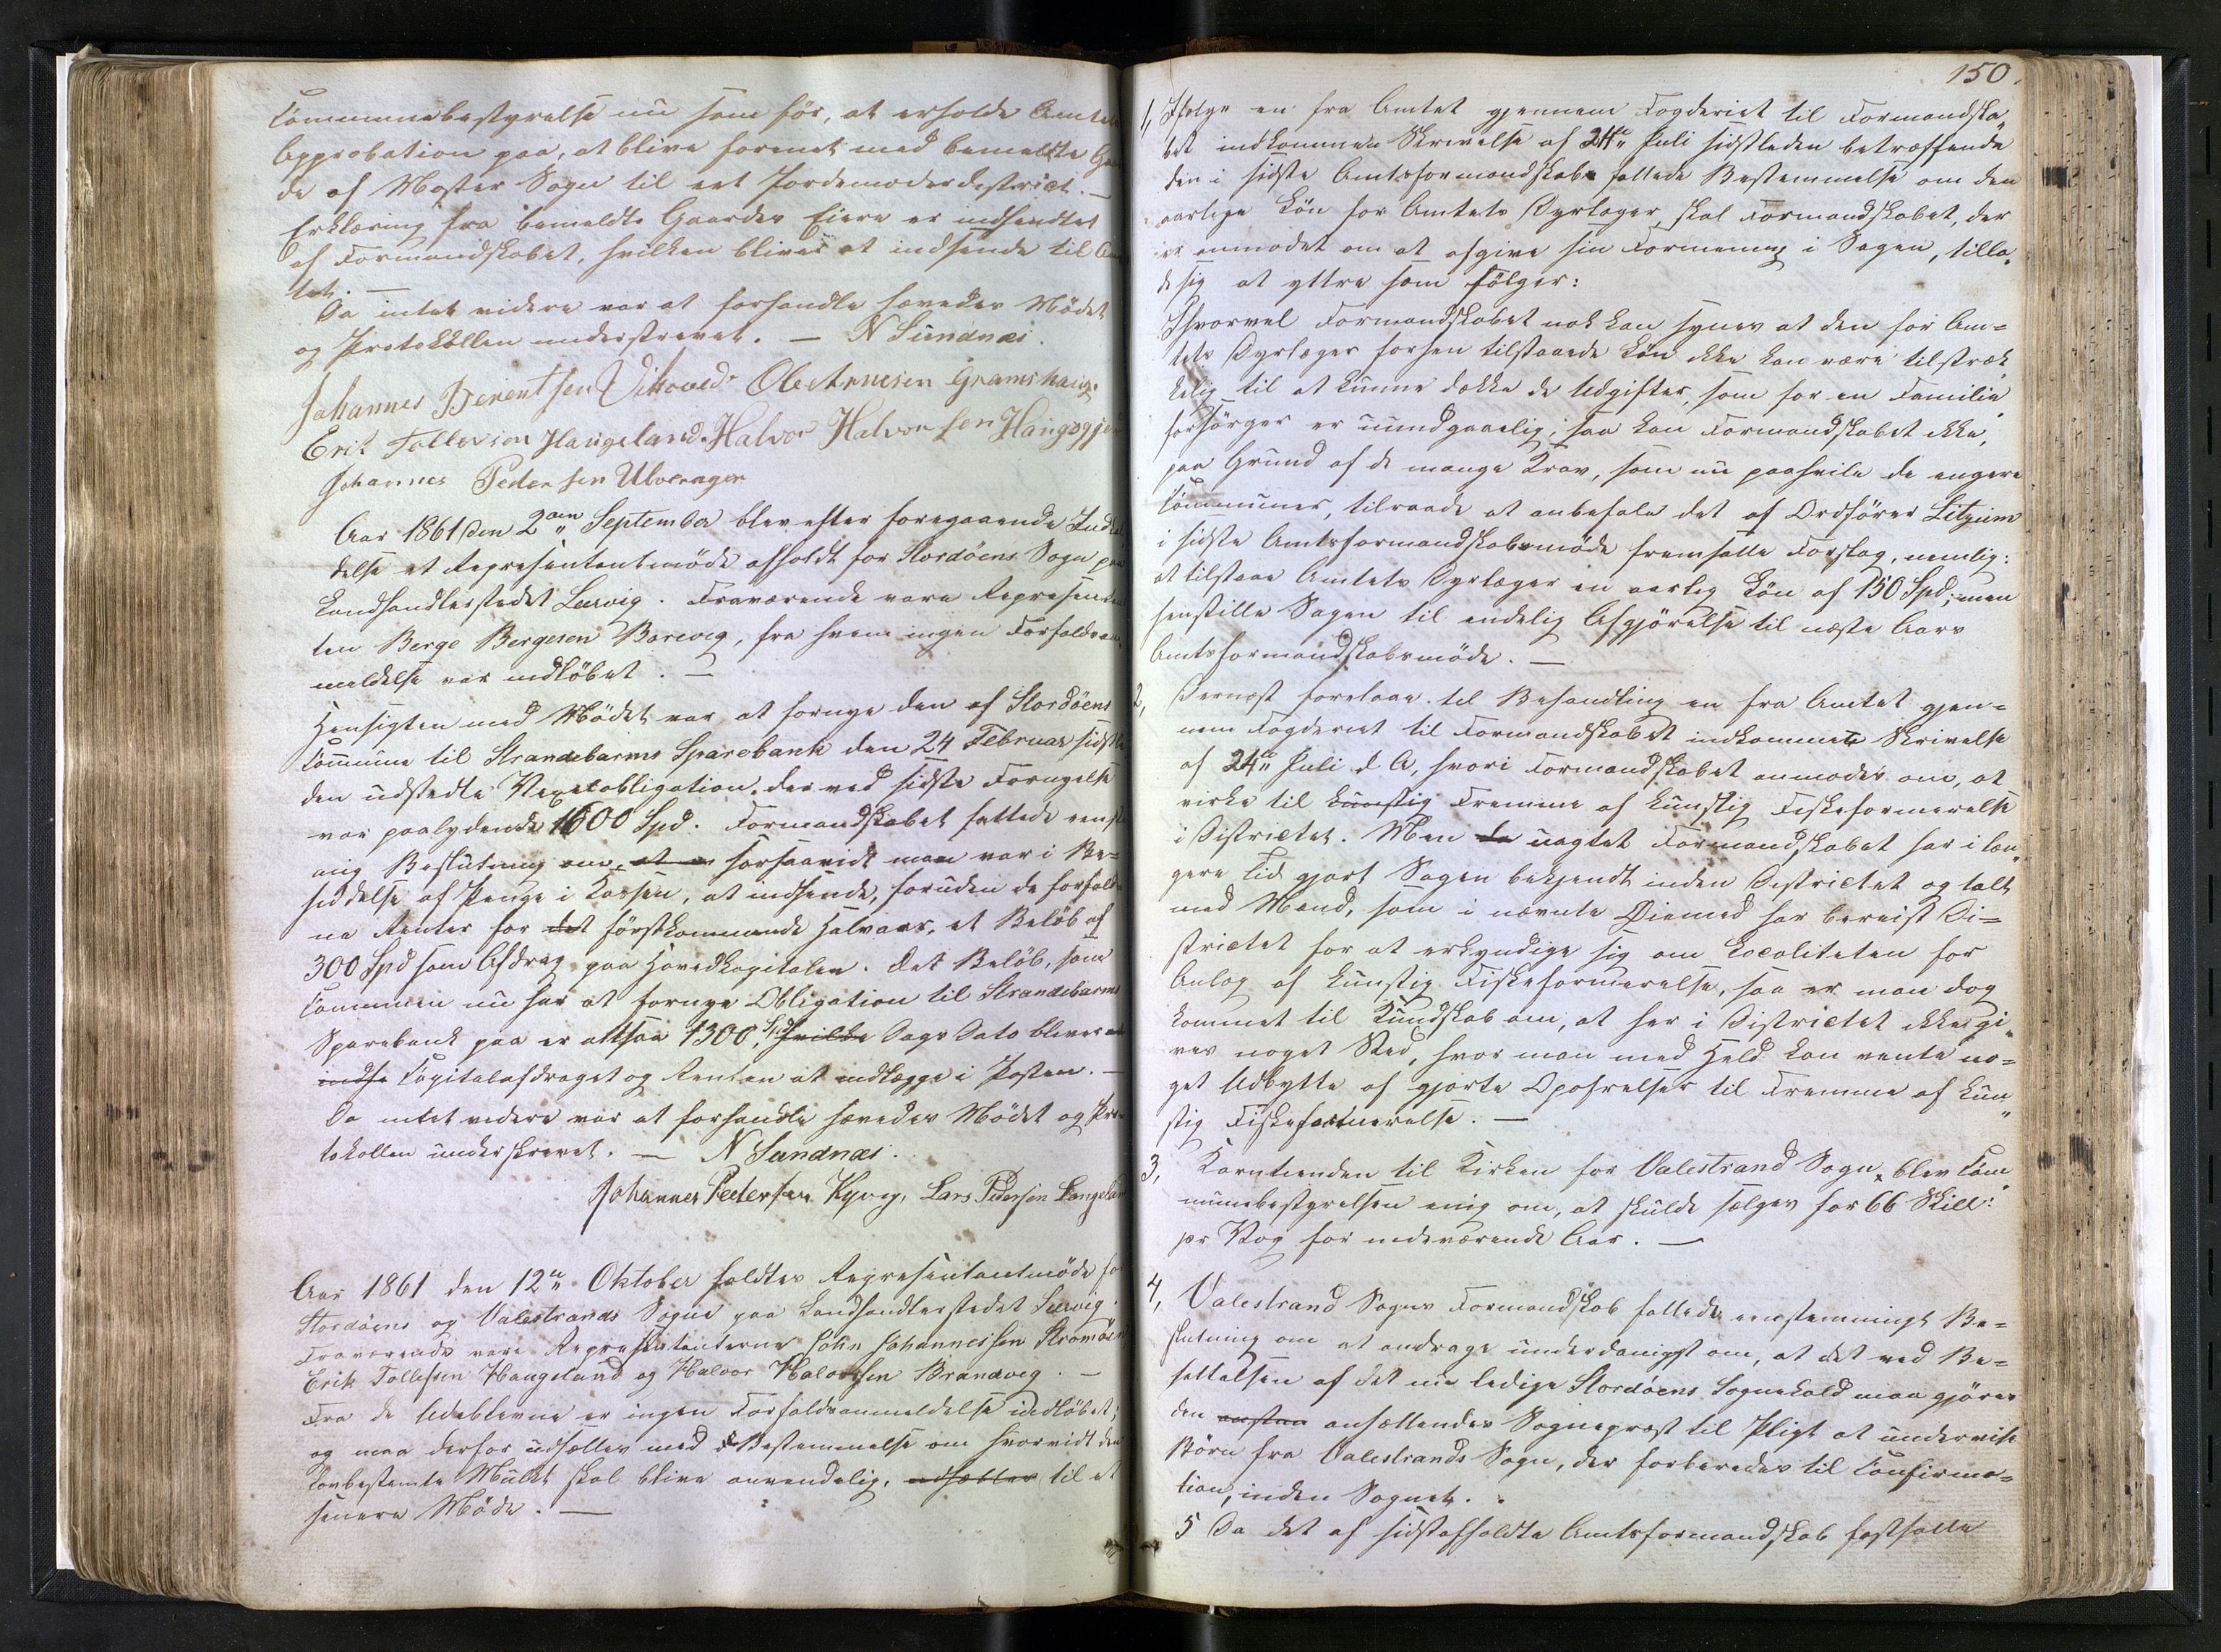 Communebestyrelse nu som før, at erholde Amtets
Approbation paa, at blive forenet med bemeldte Gaar
de af Moster Sogn til eet Jordemoderdistrict. —
Erklæring fra bemeldte Gaardes Eiere er indhentet
af Formandskabet, hvilken bliver at indsende til Am
tet. —
Da intet videre var at forhandle hævedes Mödet
og Protokollen underskrevet. — N Sundnæs.
Johannes Berentsen Vikoved. Ole Arnesen Gramshaug.
Erik Tollevsen Haugeland. Halvor Halvorsen Haugsgjer
Johannes Pedersen Ulveragen
Aar 1861 den 2den September blev efter foregaaende Indkal
delse et Repræsentantmöde afholdt for Stordöens Sogn paa
Landhandlerstedet Lervig. Fraværende vare Repræsentan
ten Berge Bergesen Borevig, fra hvem ingen Forfaldsan
meldelse var indlöbet. —
Hensigten med Mödet var at fornye den af Stordöens
Commune til Strandebarms Sparebank den 24 Februar sidstle
den udstedte Vexelobligation, der ved sidste Fornyelse
var paalydende 1600 Spd. Formandskabet fattede eenst
mig Beslutning om, at forsaavidt man var i Be=
siddelse af Penge i Cassen, at indsende, foruden de forfald
ne Renter for det förstkommende Halvaar, et Belöb af
300 Spd som Afdrag paa Hovedkapitalen. Det Belöb, som
Communen nu har at fornye Obligation til Strandebarms
Sparebank paa er altsaa 1300 Spd, hvilke Dags Dato bliver
indse Capitalafdraget og Renten at indlægge i Posten. —
Da intet videre var at forhandle hævedes Mödet og Pro=
tokollen underskrevet. — N Sundnæs.
Johannes Pedersen Kyvig, Lars Pedersen Langeland
Aar 1861 den 12te Oktober holdtes Repræsentantmöde for
Stordöens og Valestrands Sogne paa Landhandlerstedet Lervig.
Fraværende vare Repræsentanterne John Johannessen Strömöen
Erik Tollefsen Haugeland og Halvor Halvorsen Brandvig. —
Fra de Udeblevne er ingen Forfaldsanmeldelse indlöbet;
og maa derfor udsættes med Bestemmelse om hvorvidt den
lovbestemte Mulkt skal blive anvendelig, udsættes til et
senere Möde. —
150.
1, Ifølge en fra Amtet gjennem Fogderiet til Formandska„
bet indkommen Skrivelse af 24de Juli sidstleden betræffende
den i sidste Amtsformandskab fattede Bestemmelse om den
aarlige Lön for Amtets Dyrlæger, skal Formandskabet, der
er anmodet om at afgive sin Formening i Sagen, tilla„
de sig at yttre som fölger:
Ihvorvel Formandskabet nok kan synes at den for Am=
tets Dyrlæger forhen tilstaaede Lön ikke kan være tilstræk„
kelig til at kunne dække de Udgifter, som for en Familie
forsörger er uundgaaelig; saa kan Formandskabet ikke,
paa Grund af de mange Krav, som nu paahvile de engere
Communer, tilraade at anbefale det af Ordförer Litzum
i sidste Amtsformandskabsmöde fremsatte Forslag, nemlig:
at tilstaae Amtets Dyrlæger en aarlig Lön af 150 Spd; men
henstille Sagen til endelig Afgjörelse til næste Aars
Amtsformandskabsmöde. —
2, Dernæst foretoges til Behandling en fra Amtet gjen=
nem Fogderiet til Formandskabet indkommen Skrivelse
af 24de Juli d. A, hvori Formandskabet anmodes om, at
virke til kunstig Fremme af kunstig Fiskeformerelse
i Districtet. Men da uagtet Formandskabet har i læn„
gere Tid gjort Sagen bekjendt inden Districtet og talt
med Mænd, som i nævnte Øiemed har bereist Di=
strictet for at erkyndige sig om Localiteten for
Anlæg af kunstig Fiskeformerelse, saa er man dog
kommet til Kundskab om, at her i Districtet ikke gi„
ves noget Sted, hvor man med Held kan vente no=
get Udbytte af gjorte Opofrelser til Fremme af kun„
stig Fiskeformerelse. —
3, Korntienden til Kirken for Valestrand Sogn, blev Com„
munebestyrelsen enig om, at skulde sælges for 66 Skill:
pr Vog for indeværende Aar. —
4, Valestrand Sogns Formandskab fattede eenstemmigt Be=
slutning om at andrage underdanigst om, at det ved Be=
sættelsen af det nu ledige Stordöens Sognekald maa gjöres
den ansættendes Sognepræst til Pligt at undervise
Börn fra Valestrands Sogn, der forberedes til Confirma=
tion, inden Sognet.
5 Da det af sidstafholdte Amtsformandskab fastsatte